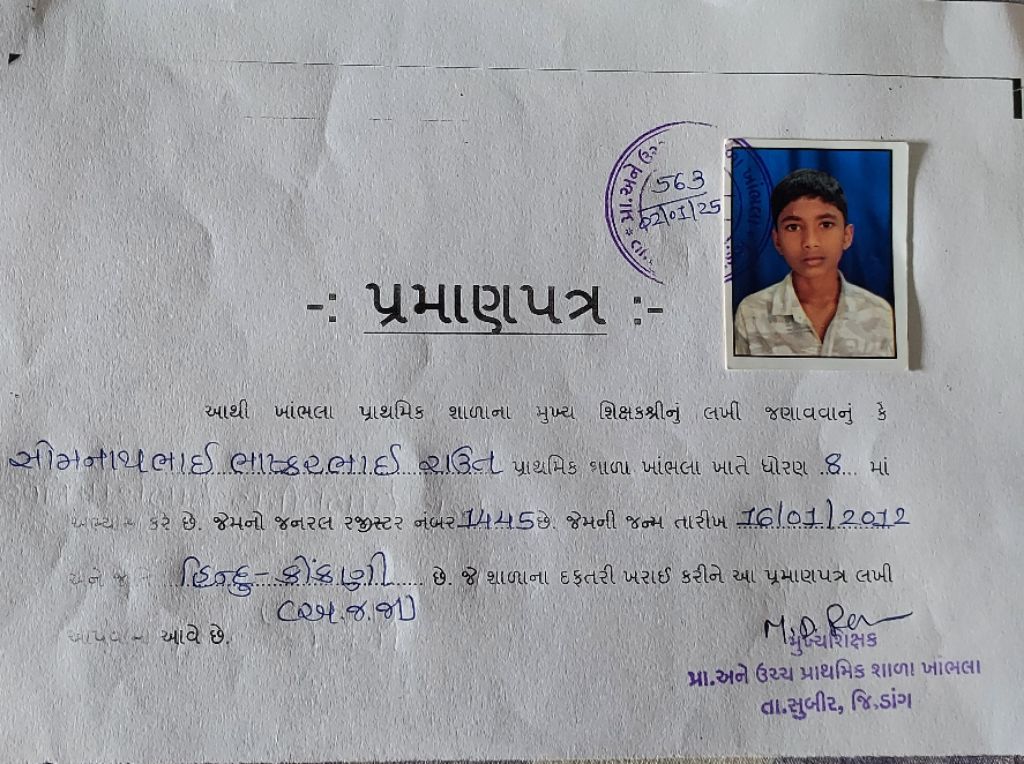 પ્રા.અને ઉચ્ચ
ખાંભલા
તા.
563
02/01/25
-: પ્રમાણપત્ર :-
આથી ખાંભલા પ્રાથમિક શાળાના મુખ્ય શિક્ષકશ્રીનું લખી જણાવવાનું કે
સોમનાથભાઈ ભાષ્કરભાઈ રાઉત પ્રાથમિક શાળા ખાંભલા ખાતે ધોરણ .8... માં
અભ્યાસ કરે છે. જેમનો જનરલ રજીસ્ટર નંબર 1445 છે. જેમની જન્મ તારીખ 16/01/2012
અને જાતિ હિન્દુ-કોંકણી છે. જે શાળાના દફતરી ખરાઈ કરીને આ પ્રમાણપત્ર લખી
(અ.જ.જા)
આપવામાં આવે છે.
મુખ્યશિક્ષક
પ્રા.અને ઉચ્ચ પ્રાથમિક શાળા ખાંભલા
તા.સુબીર, જિ.ડાંગ